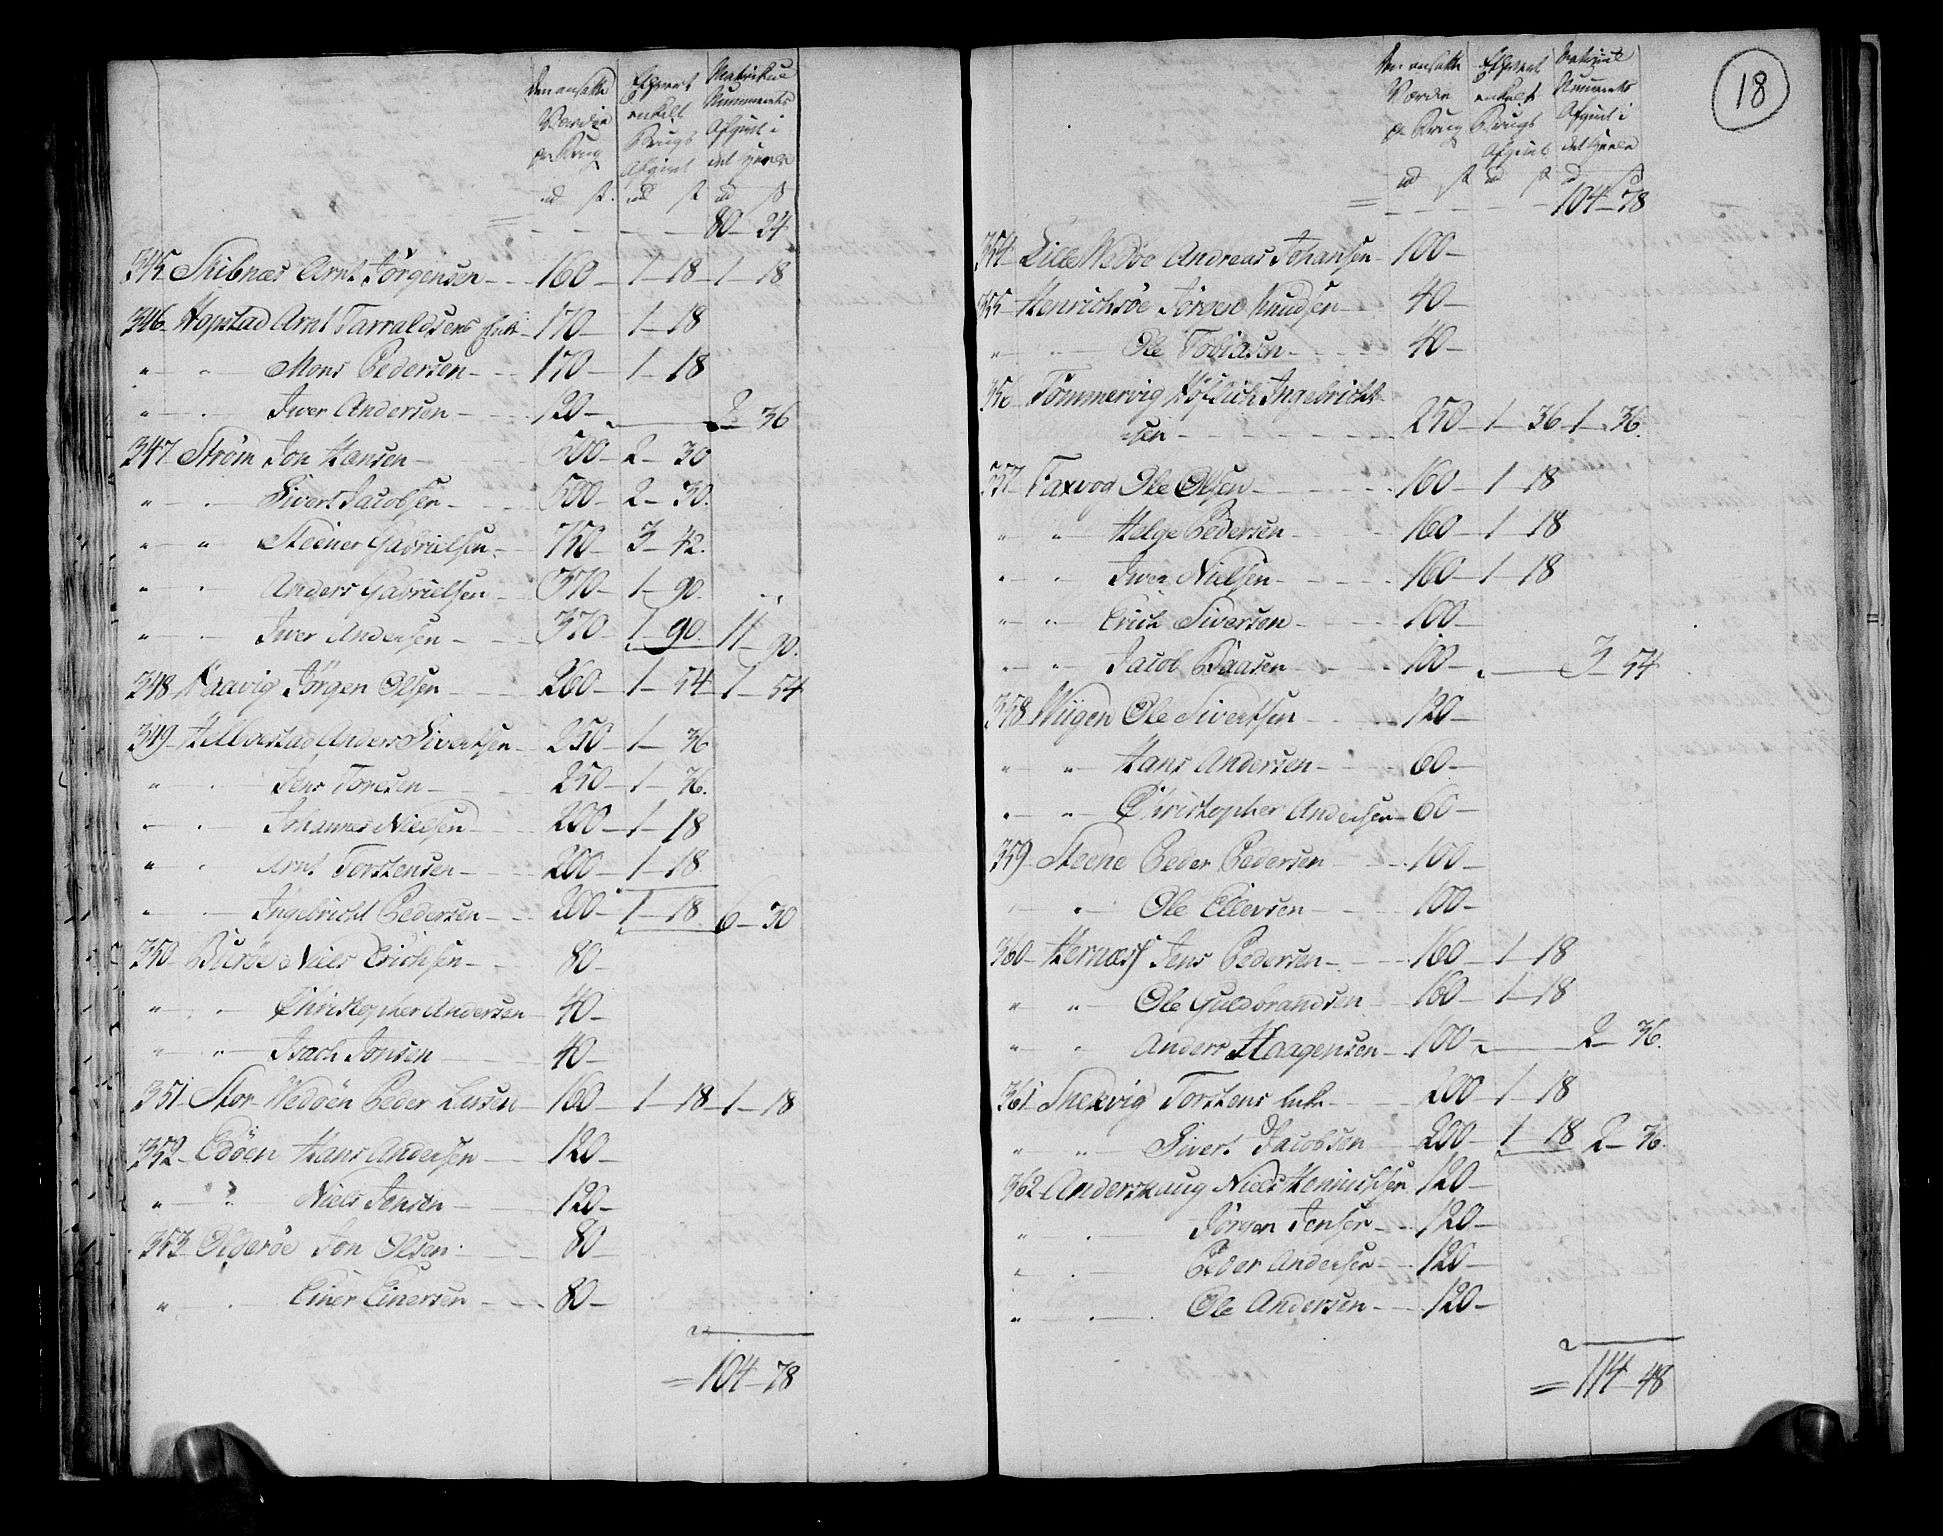 Den ansatte Værdie pr Brug
Ethvert enkelt Brugs Afgivt
Matrikul Nummerets Afgivt i det heele
80 - 24
345 Skibnæs Arnt Jörgensen - 160 - 1 - 18 - 1 - 18
346 Hopstad Arnt Tarraldsens Enke - 170 - 1 - 18
" " Mons Pedersen - 170 - 1 - 18
" " Iwer Andersen - 120 - 2 - 36
347 Ström Jon Hansen - 500 - 2 - 30
" " Sivert Jacobsen - 500 - 2 - 30
" " Steener Gabrielsen - 750 - 3 - 42
" " Anders Gabrielsen - 370 - 1 - 90
" " Iwer Andersen - 370 - 1 - 90 11 - 90
348 Jörgen Olsen - 360 - 1 - 54 - 1 - 54
349 Anders Sivertsen - 250 - 1 - 36
" " Jens Toresen - 250 - 1 - 36
" " Johannes Nielsen - 200 - 1 - 18
" " Arnt Torstensen - 200 - 1 - 18
" " Ingebricht Pedersen - 200 - 1 - 18 6 - 30
350 Buröe Niels Erichsen - 80 -
" " Christopher Andersen 40 -
" " Isach Jonsen 40 -
351 Stor Wedöen Peder Larsen 160 - 1 - 18 - 1 - 18
352 Edöen Hans Andersen - 120 -
" " Niels Jensen - 120 -
353 Olderöe Jon Olsen - 80 -
" " Einer Einersen - 80 -
= 104 - 78
18
Den ansatte Værdie pr Brug
Ethvert enkelt Brugs Afgivt
Matrikul Nummerets Afgivt i det heele
104 - 78
354 Lille Wedöe Andreas Johansen - 100 -
355 Henrichsöe Jörgen Knudsen - 40 -
" " Ole Tobiasen - 40 -
356 Tömmervig Höflich Ingebricht-
sen - 250 - 1 - 36 - 1 - 36
357 Faxvog Ole Olsen - 160 - 1 - 18
" " Helge Pedersen - 160 - 1 - 18
" " Iwer Nielsen - 160 - 1 - 18
" " Erich Siversen - 100 -
" " Jacob Baasen - 100 - 3 - 54
358 Wiigen Ole Sivertsen - 120 -
" " Hans Andersen - 60 -
" " Christopher Andersen - 60 -
359 Steene Peder Pedersen - 100 -
" " Ole Ellevsen - 100 -
360 Hernæss Jens Pedersen - 160 - 1 - 18
" " Ole Guldbrandsen - 160 - 1 - 18
" " Anders Haagensen - 100 - 2 - 36
361 Snekvig Torstens Enke - 200 - 1 - 18
" " Sivert Jacobsen - 200 - 1 - 18 2 - 36
362 Anderskaug Niels 120 -
" " Jörgen Jensen - 120 -
" " Peder Andersen - 120 -
" " Ole Andersen - 120 -
= 114 - 48